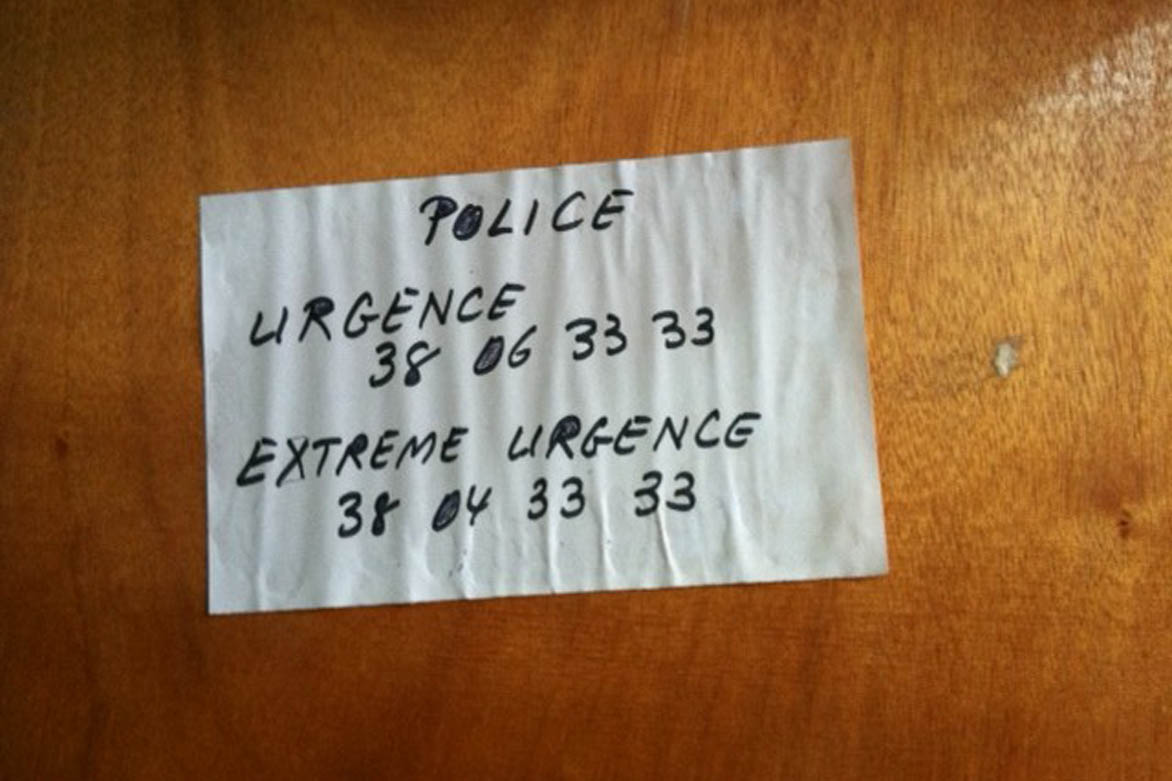 POLICE
URGENCE
38 06 33 33
EXTREME URGENCE
38 04 33 33